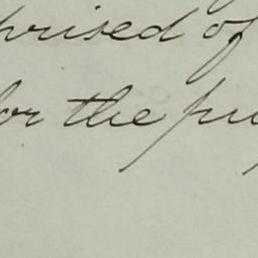 prised of
for the pu